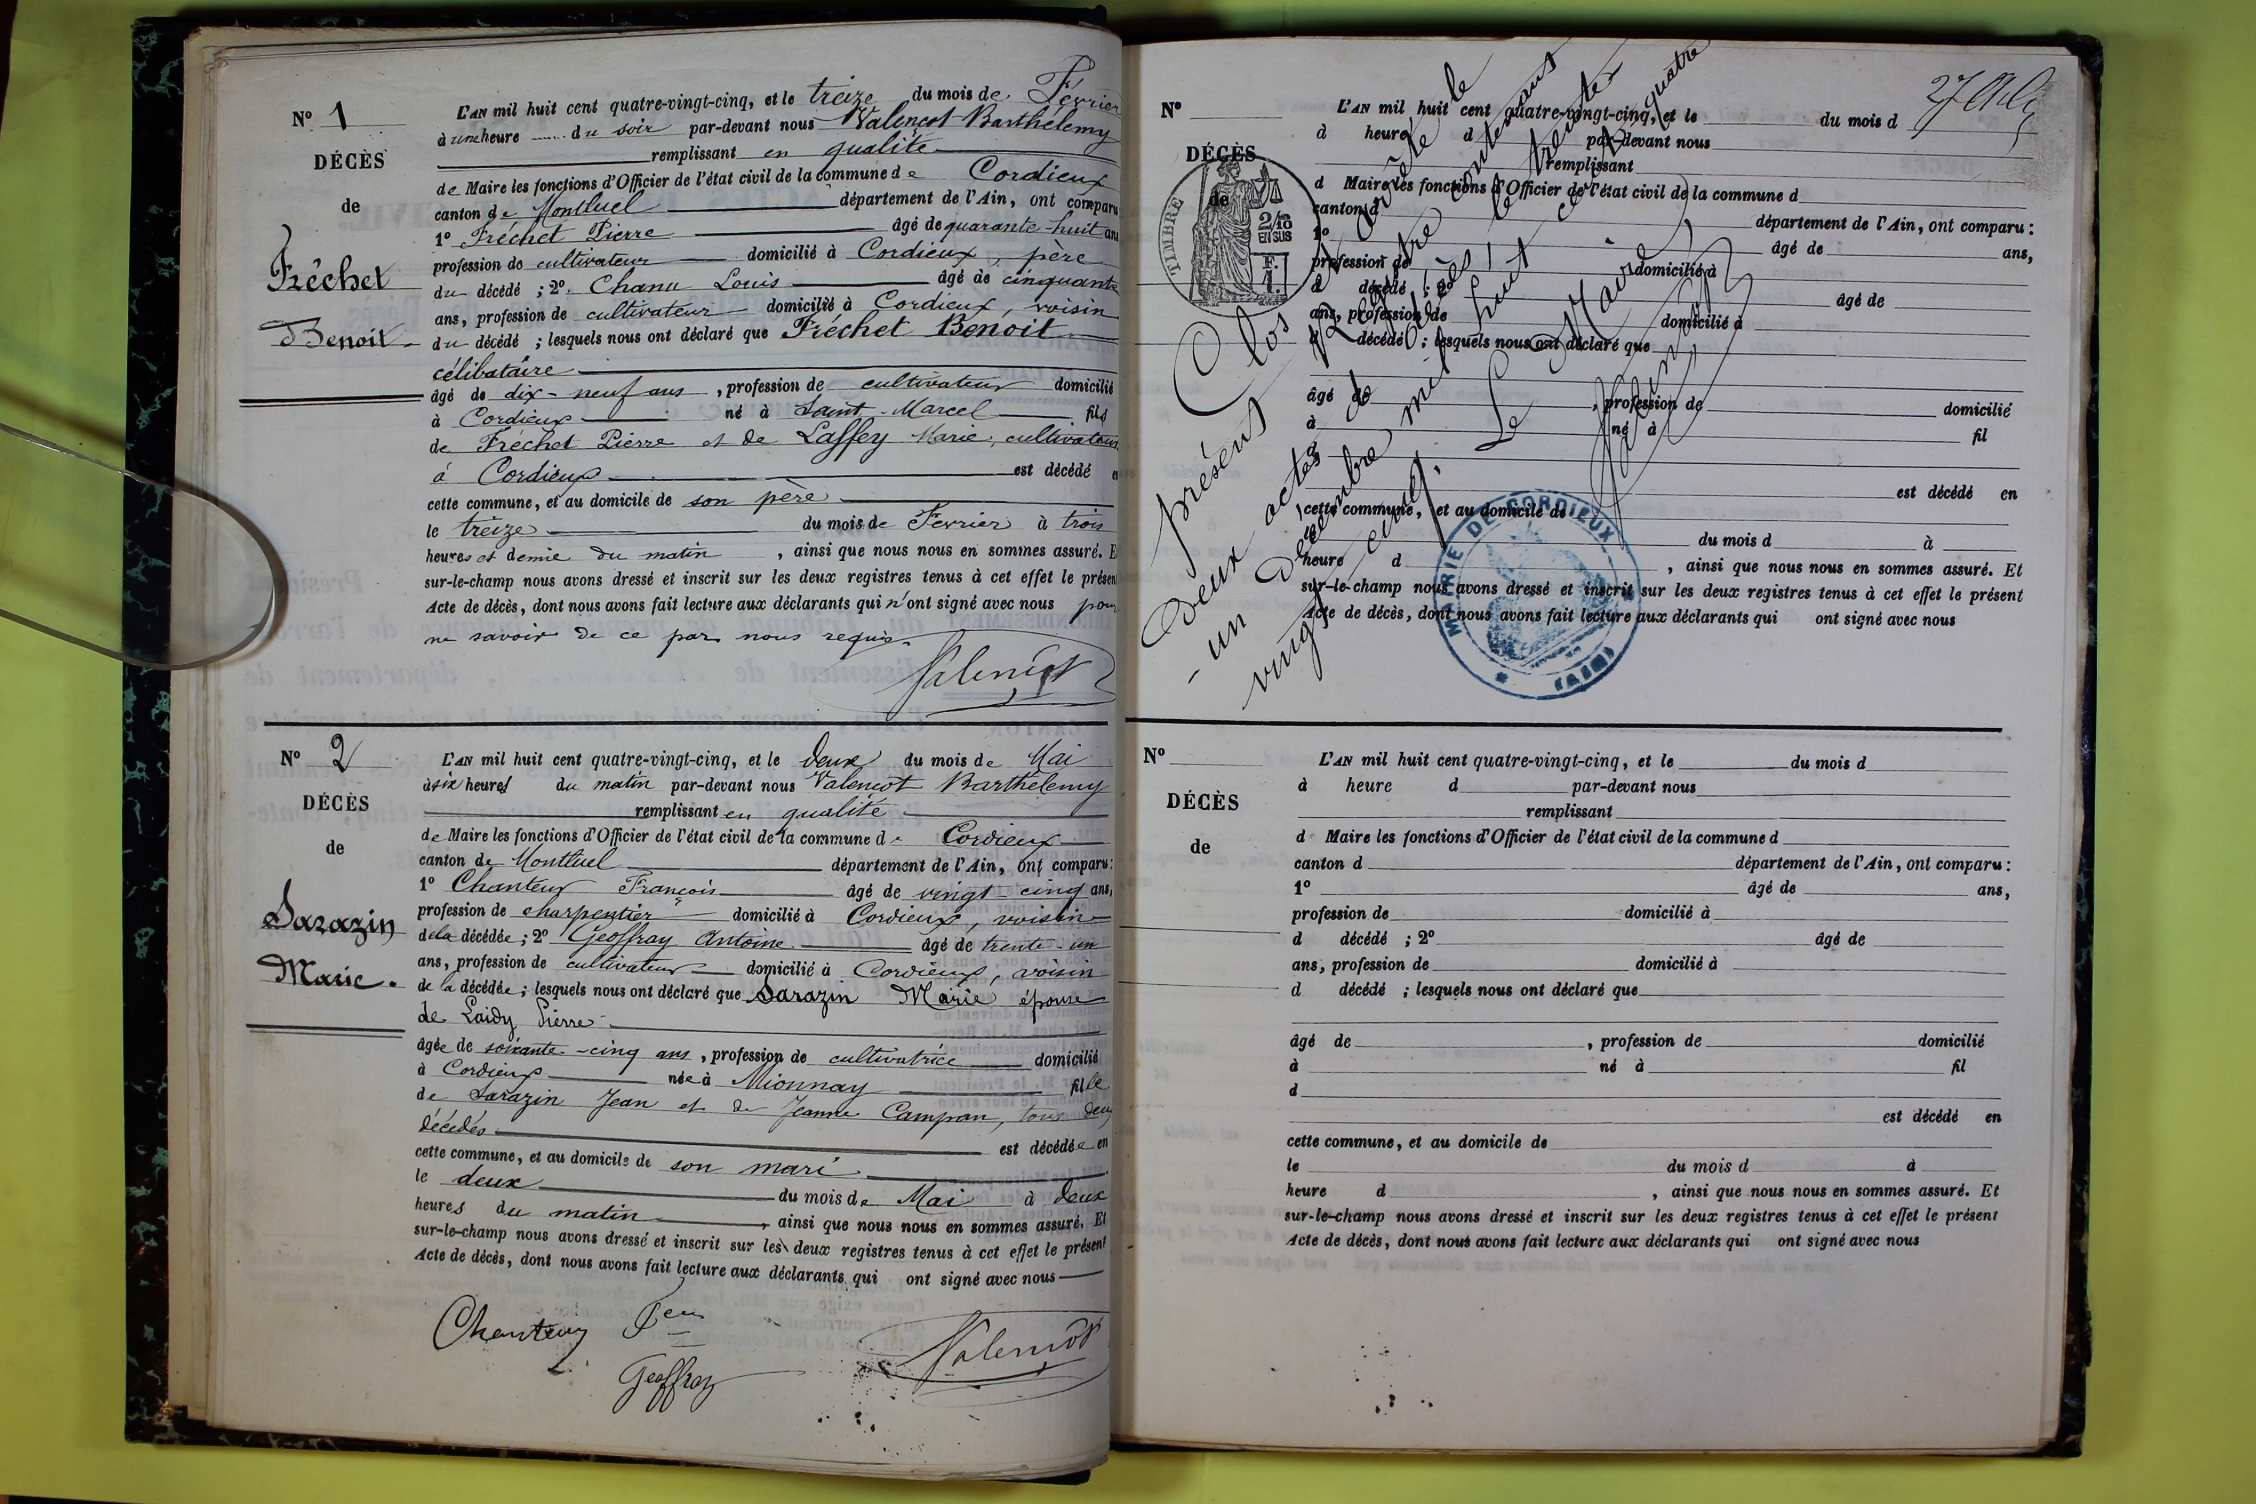 N° 1
DÉCÈS
de
Fréchet
Benoit
L'AN mil huit cent quatre-vingt-cinq, et le treize du mois de Fevrier
à une heure du soir par-devant nous Valencot Barthélemy
remplissant en qualité
de Maire les fonctions d'Officier de l'état civil de la commune de Cordieux
canton de Montluel département de l'Ain, ont comparu
1° Fréchet Pierre âgé de quarante-huit ans
profession de cultivateur domicilié à Cordieux, père
du décédé ; 2° Chanu Louis âgé de cinquante
ans, profession de cultivateur domicilié à Cordieux, voisin
du décédé ; lesquels nous ont déclaré que Fréchet Benoit
célibataire
âgé de dix-neuf ans, profession de cultivateur domicilié
à Cordieux né à Saint-Marcel fils
de Fréchet Pierre et de Laffey Marie, cultivateurs
à Cordieux est décédé en
cette commune, et au domicile de son père
le treize du mois de Fevrier à trois
heures et demie du matin, ainsi que nous nous en sommes assuré. Et
sur-le-champ nous avons dressé et inscrit sur les deux registres tenus à cet effet le présent
Acte de décès, dont nous avons fait lecture aux déclarants qui n'ont signé avec nous pour
ne savoir de ce par nous requis.
Valencot
N° 2
DÉCÈS
de
Sarazin
Marie.
L'AN mil huit cent quatre-vingt-cinq, et le deux du mois de Mai
à six heures du matin par-devant nous Valencot Barthélemy
remplissant en qualité
de Maire les fonctions d'Officier de l'état civil de la commune de Cordieux
canton de Montluel département de l'Ain, ont comparu :
1° Chanteur François âgé de vingt-cinq ans,
profession de charpentier domicilié à Cordieux, voisin
de la décédée ; 2° Geoffray Antoine âgé de trente-un
ans, profession de cultivateur domicilié à Cordieux, voisin
de la décédée ; lesquels nous ont déclaré que Sarazin Marie épouse
de Laidy Pierre
âgée de soixante-cinq ans, profession de cultivatrice domicilié
à Cordieux née à Mionnay fille
de Sarazin Jean et de Jeanne Campan, tous deux
décédés est décédée en
cette commune, et au domicile de son mari
le deux du mois de Mai à deux
heures du matin, ainsi que nous nous en sommes assuré. Et
sur-le-champ nous avons dressé et inscrit sur les deux registres tenus à cet effet le présent
Acte de décès, dont nous avons fait lecture aux déclarants qui ont signé avec nous
Chanteur
Geoffray
Valencot
27
N°
DÉCÈS
de
TIMBRE
2/10
EN SUS
F.
1.
L'AN mil huit cent quatre-vingt-cinq, et le du mois d
à heure d par-devant nous
remplissant
d Maire les fonctions d'Officier de l'état civil de la commune d
canton d département de l'Ain, ont comparu :
1° âgé de ans,
profession de domicilié à
d décédé ; 2° âgé de
ans, profession de domicilié à
d décédé ; lesquels nous ont déclaré que
âgé de , profession de domicilié
à né à fil
est décédé en
cette commune, et au domicile de
du mois d à
heure d , ainsi que nous nous en sommes assuré. Et
sur-le-champ nous avons dressé et inscrit sur les deux registres tenus à cet effet le présent
Acte de décès, dont nous avons fait lecture aux déclarants qui ont signé avec nous
Clos et arrêté le
présent Registre contenant
deux actes de décès, le trente-
-un décembre mil huit cent quatre
vingt cinq.
Le Maire,
Valencot
MAIRIE DE CORDIEUX
(AIN)
N°
DÉCÈS
de
L'AN mil huit cent quatre-vingt-cinq, et le du mois d
à heure d par-devant nous
remplissant
d Maire les fonctions d'Officier de l'état civil de la commune d
canton d département de l'Ain, ont comparu :
1° âgé de ans,
profession de domicilié à
d décédé ; 2° âgé de
ans, profession de domicilié à
d décédé ; lesquels nous ont déclaré que
âgé de , profession de domicilié
à né à fil
d
est décédé en
cette commune, et au domicile de
le du mois d à
heure d , ainsi que nous nous en sommes assuré. Et
sur-le-champ nous avons dressé et inscrit sur les deux registres tenus à cet effet le présent
Acte de décès, dont nous avons fait lecture aux déclarants qui ont signé avec nous